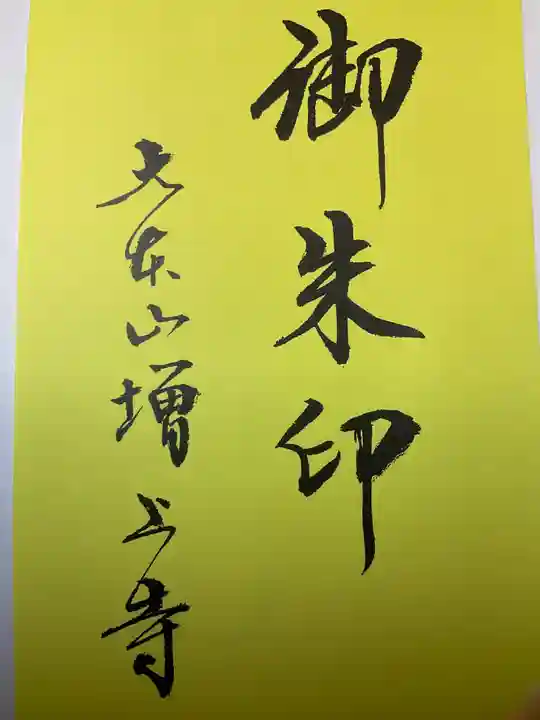 御朱印
大本山増上寺